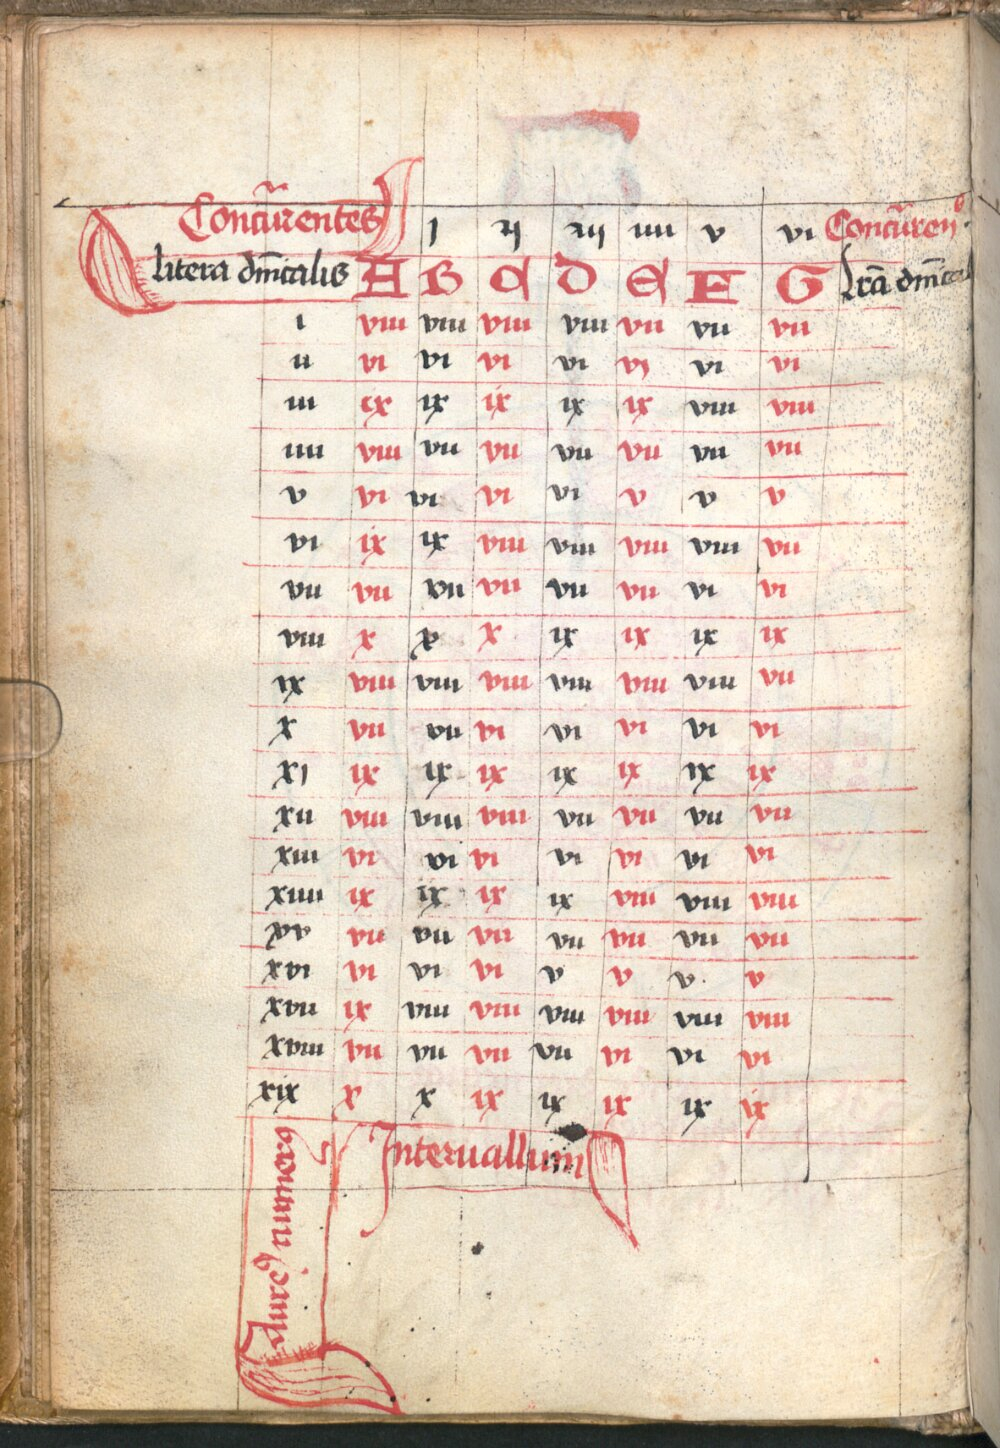 Concurentes j ij iij iiii v vi Concuren9
litera dm̄icalis A B C D E F G lr̄a dm̄ical
i viii viii viii viii vii vii vii
ii vi vi vi vi vj vi vi
iii ix ix ix ix ix viii viii
iiii viii vii vii vii vii vii vii
v vi vi vi vi v v v
vi ix ix viii viii viii viii vii
vii vii vii vii vii vii vi vi
viii x x x ix ix ix ix
ix viii viii viii viii viii viii vii
x vii vii vi vi vi vi vi
xj ix ix ix ix ix ix ix
xii viii viii viii vii vii vii vii
xiii vi vi vi vi vi vi vi
xiiii ix ix ix ix viii viii viii
xv vii vii vii vii vii vii vii
xvi vi vi vi v v v v
xvii ix viii viii viii viii viii viii
xviii vii vii vii vii vi vi vi
xix x x ix ix ix ix ix
Interuallum
Aure9 numer9